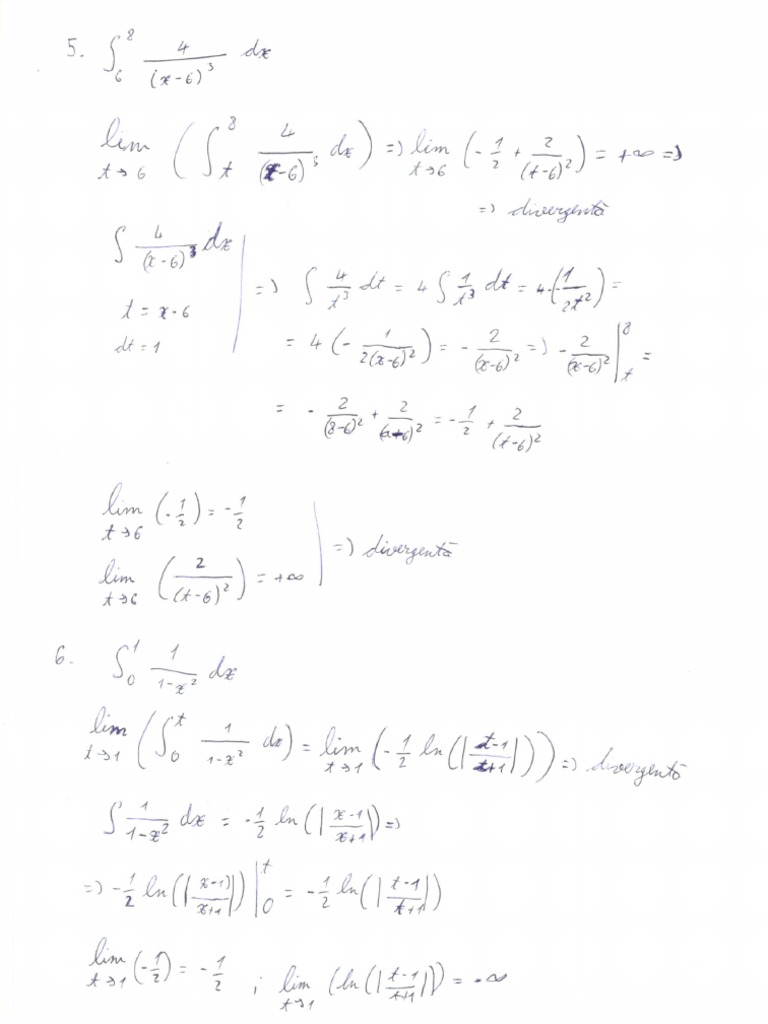 5. ∫₆⁸ 4/(x-6)³ dx
lim t→6 (∫ₜ⁸ 4/(x-6)³ dx) => lim t→6 (-1/2 + 2/(t-6)²) = +∞ =>
=> divergentă
∫ 4/(x-6)³ dx
t = x-6
dt = 1
=> ∫ 4/t³ dt = 4 ∫ 1/t³ dt = 4·(-1/2t²) =
= 4 (- 1/2(x-6)²) = - 2/(x-6)² => - 2/(x-6)² |ₜ⁸ =
= - 2/(8-6)² + 2/(t-6)² = -1/2 + 2/(t-6)²
lim t→6 (-1/2) = -1/2
lim t→6 (2/(t-6)²) = +∞
=> divergentă
6. ∫₀¹ 1/(1-x²) dx
lim t→1 (∫₀ᵗ 1/(1-x²) dx) = lim t→1 (-1/2 ln(|(t-1)/(t+1)|)) => divergentă
∫ 1/(1-x²) dx = -1/2 ln(|(x-1)/(x+1)|) =>
=> -1/2 ln(|(x-1)/(x+1)|) |₀ᵗ = -1/2 ln(|(t-1)/(t+1)|)
lim t→1 (-1/2) = -1/2 ; lim t→1 (ln(|(t-1)/(t+1)|) = -∞